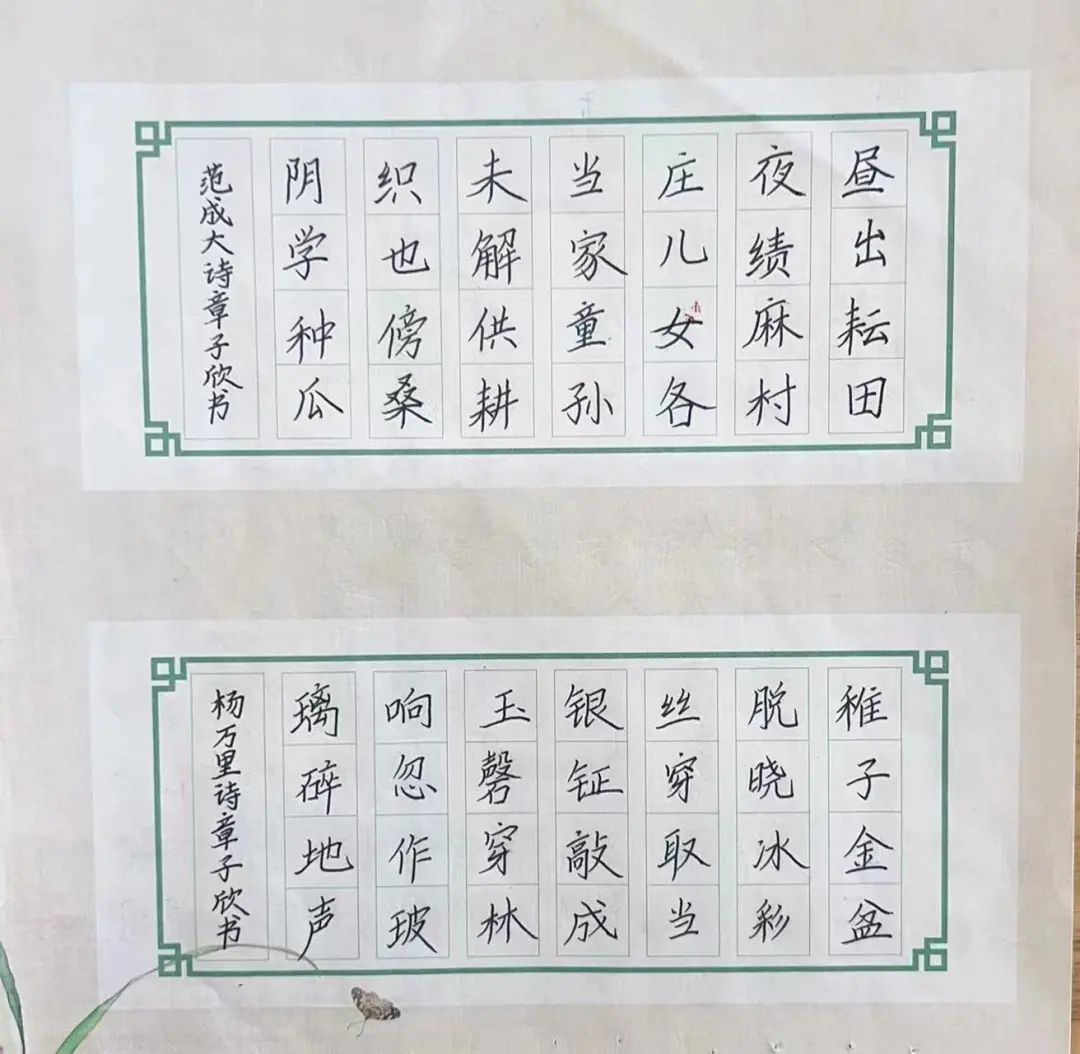 昼出耘田
夜绩麻村
庄儿女各
当家童孙
未解供耕
织也傍桑
阴学种瓜
范成大诗章子欣书
稚子金盆
脱晓冰彩
丝穿取当
银钲敲成
玉磬穿林
响忽作玻
璃碎地声
杨万里诗章子欣书